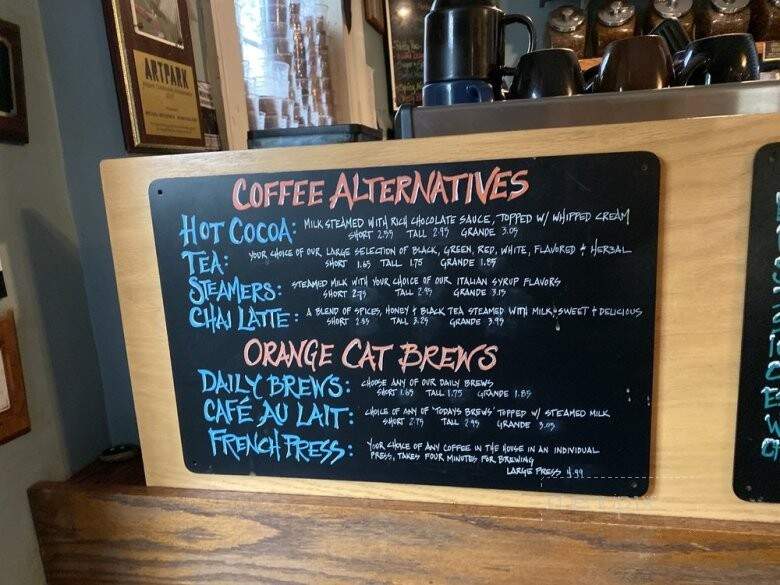 ARTPARK
COFFEE ALTERNATIVES
HOT COCOA: MILK STEAMED WITH RICH CHOCOLATE SAUCE, TOPPED W/ WHIPPED CREAM
SHORT 2.55 TALL 2.95 GRANDE 3.05
TEA: YOUR CHOICE OF OUR LARGE SELECTION OF BLACK, GREEN, RED, WHITE, FLAVORED + HERBAL
SHORT 1.65 TALL 1.75 GRANDE 1.85
STEAMERS: STEAMED MILK WITH YOUR CHOICE OF OUR ITALIAN SYRUP FLAVORS
SHORT 2.75 TALL 2.95 GRANDE 3.15
CHAI LATTE: A BLEND OF SPICES, HONEY + BLACK TEA STEAMED WITH MILK, SWEET + DELICIOUS
SHORT 2.95 TALL 3.25 GRANDE 3.95
ORANGE CAT BREWS
DAILY BREWS: CHOOSE ANY OF OUR DAILY BREWS
SHORT 1.65 TALL 1.75 GRANDE 1.85
CAFÉ AU LAIT: CHOICE OF ANY OF "TODAYS BREWS" TOPPED W/ STEAMED MILK
SHORT 2.75 TALL 2.95 GRANDE 3.05
FRENCH PRESS: YOUR CHOICE OF ANY COFFEE IN THE HOUSE IN AN INDIVIDUAL
PRESS, TAKES FOUR MINUTES FOR BREWING
LARGE PRESS 4.99